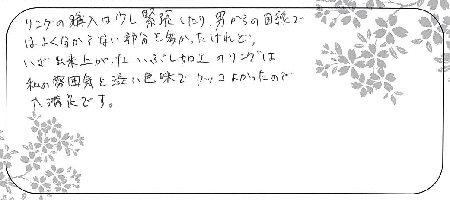 リングの購入は少し緊張したり、男からの目線で
はよく分からない部分も多かったけれど、
いざ出来上がったいぶし加工のリングは
私の雰囲気と渋い色味でカッコよかったので
大満足です。